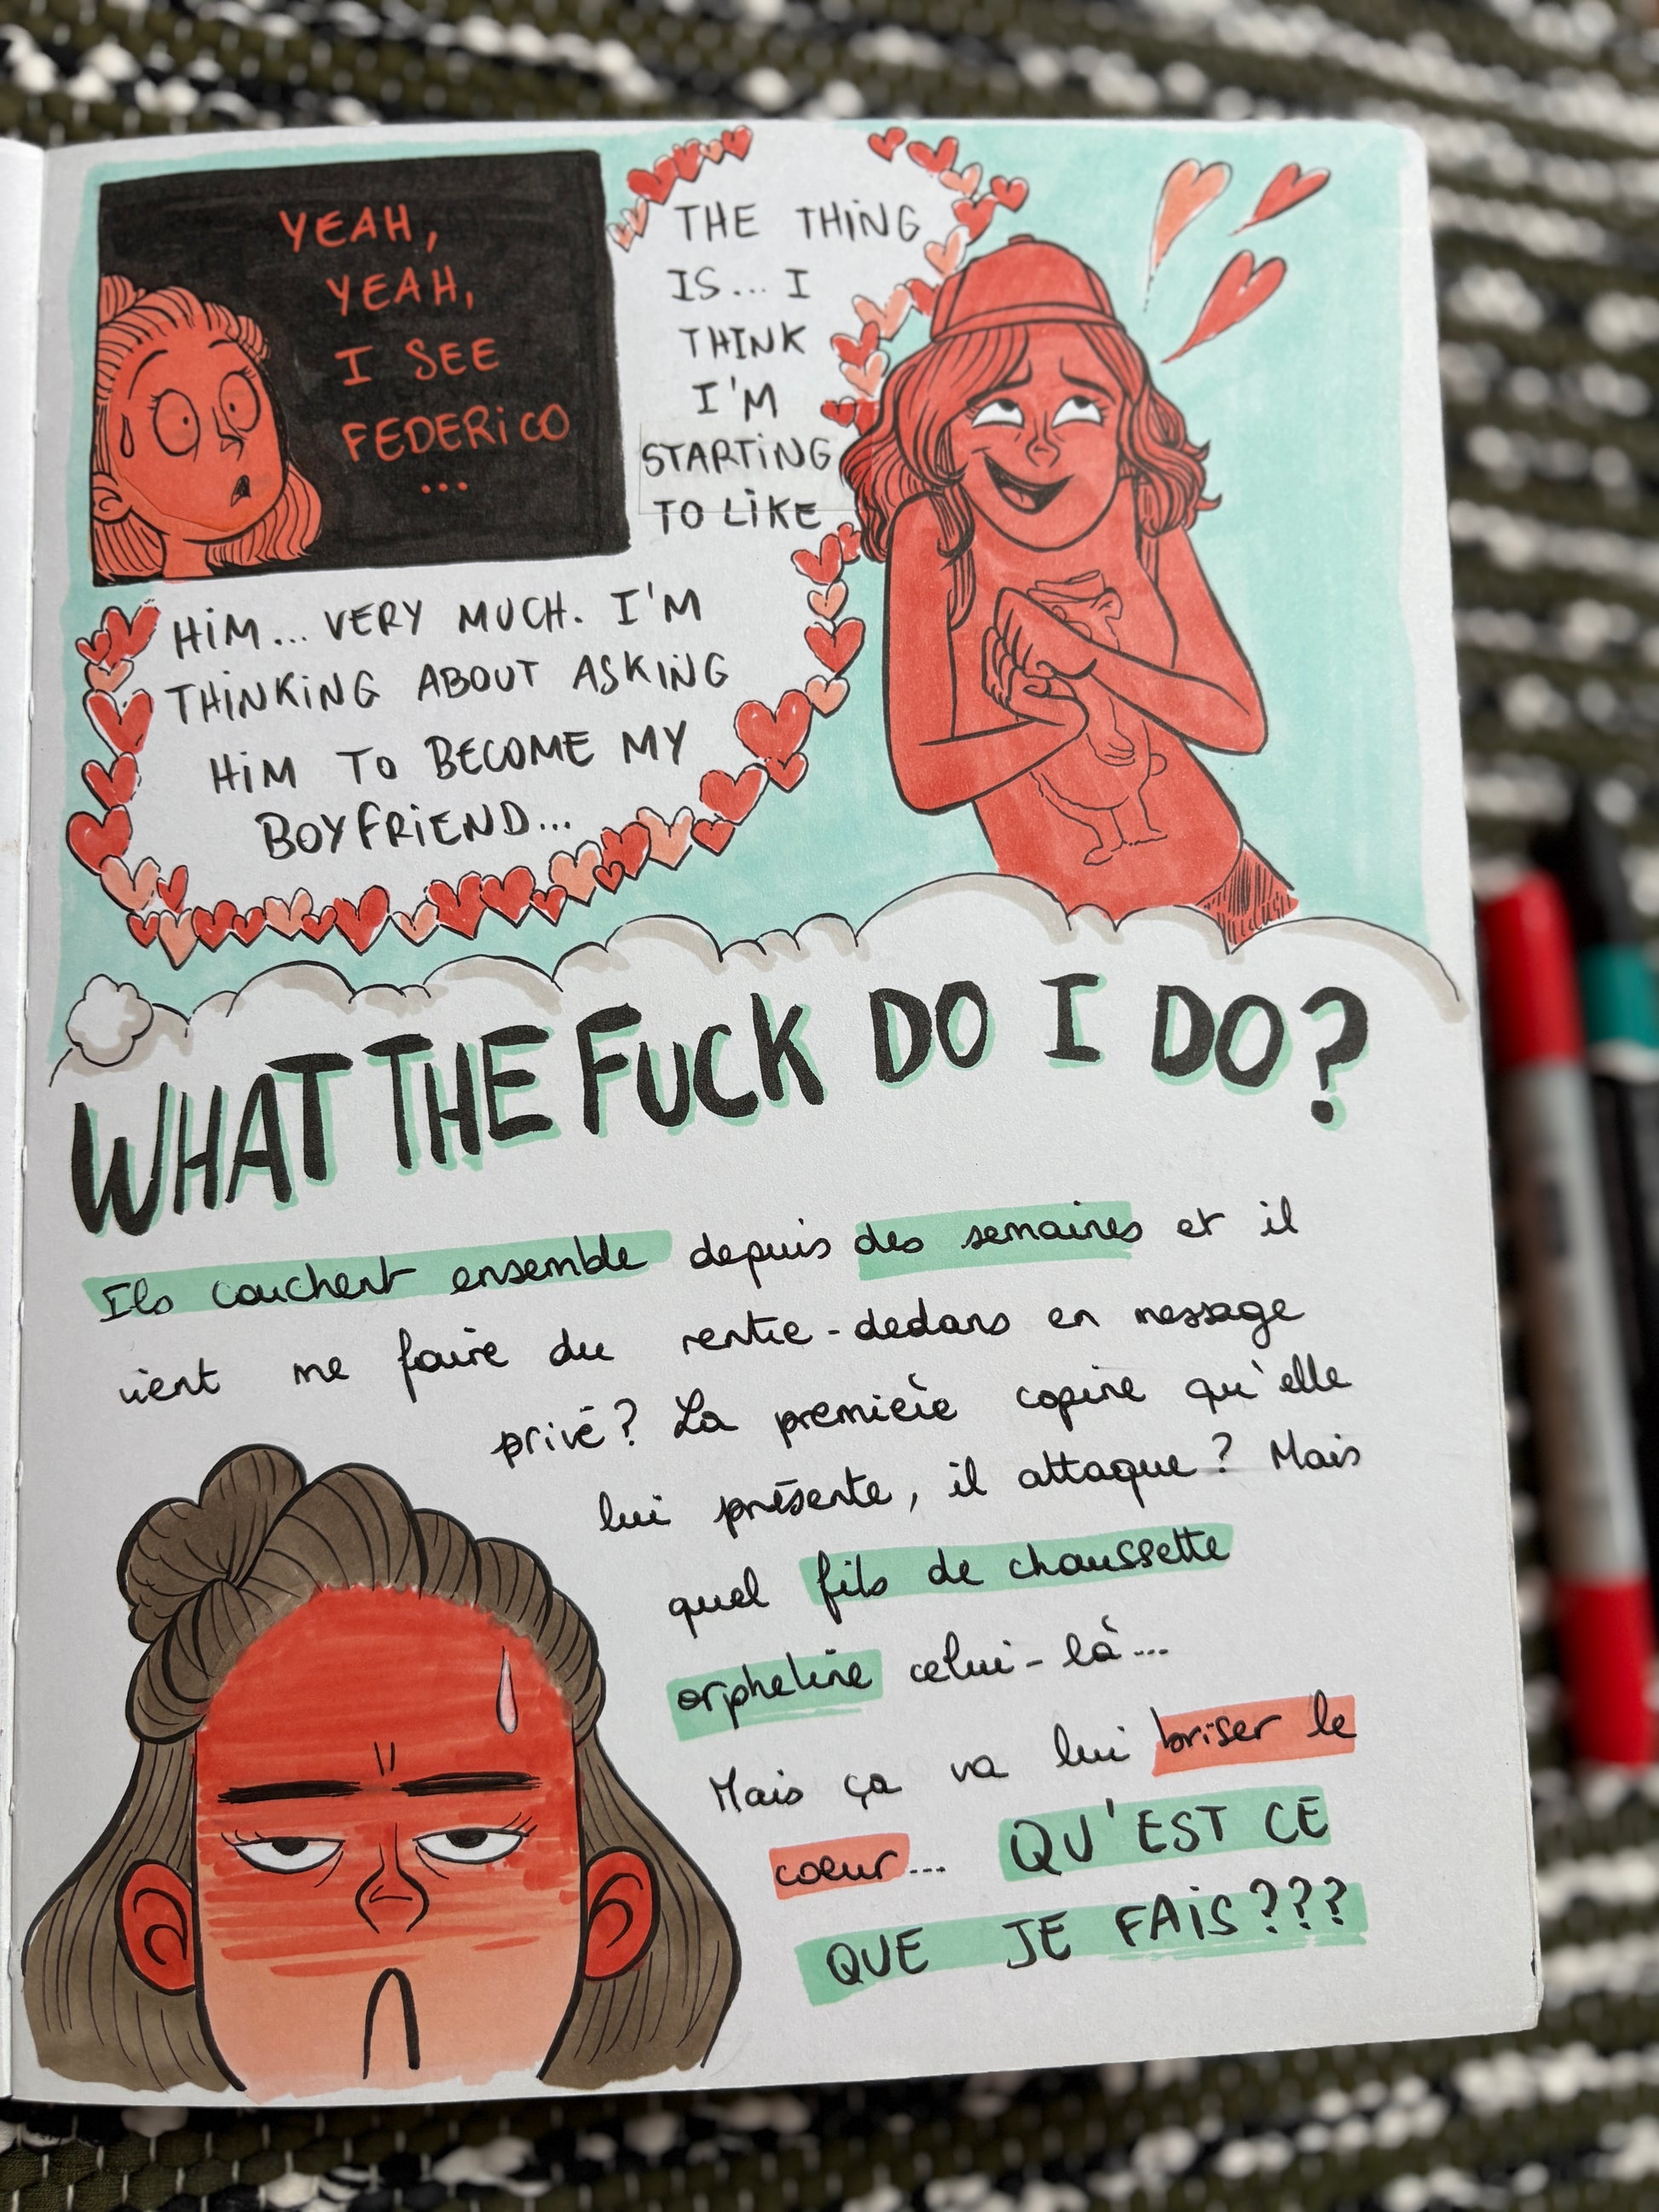 YEAH,
YEAH,
I SEE
FEDERICO
...
THE THING
IS... I
THINK
I'M
STARTING
TO LIKE
HIM... VERY MUCH. I'M
THINKING ABOUT ASKING
HIM TO BECOME MY
BOYFRIEND...
WHAT THE FUCK DO I DO?
Ils couchent ensemble depuis des semaines et il
vient me faire du rentre-dedans en message
privé? La première copine qu'elle
lui présente, il attaque? Mais
quel fils de chaussette
orpheline celui-là...
Mais ça va lui briser le
coeur... QU'EST CE
QUE JE FAIS???